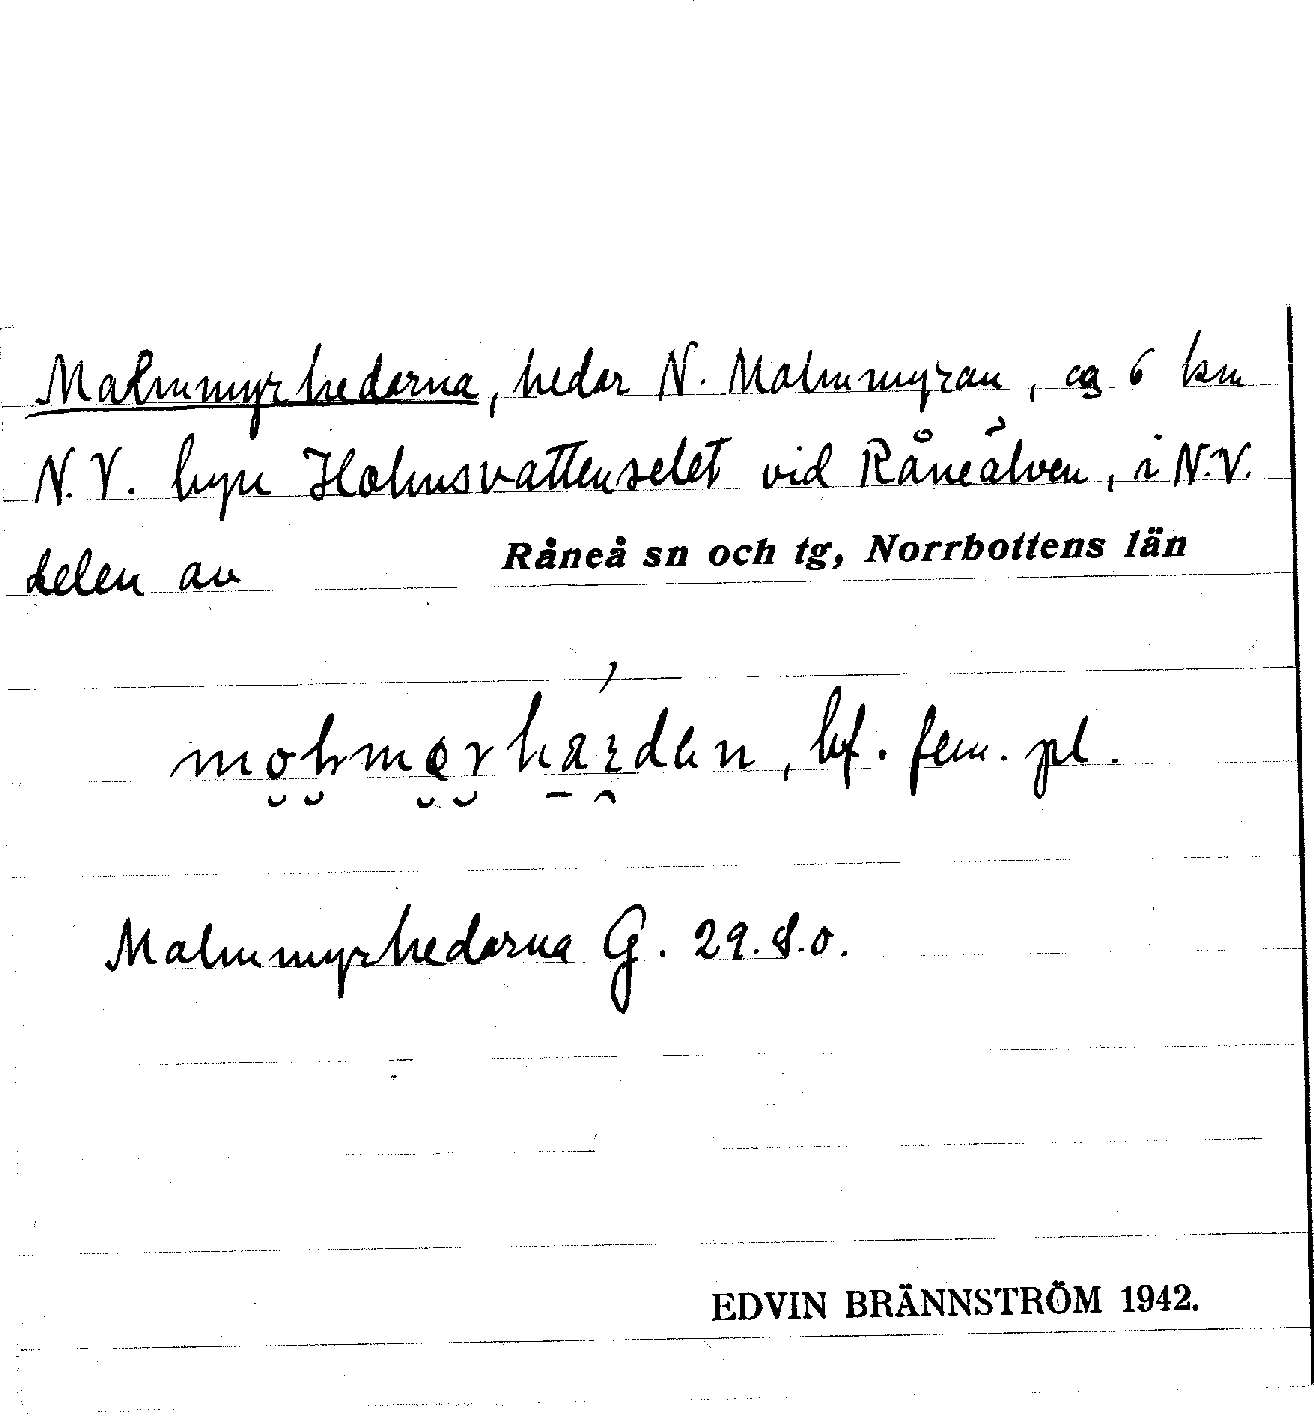 Malmmyrhedarna, hedar N. Malmmyran, ca 6 km
N.V. byn Holmsvattenselet vid Råneälven, i N.V.
delen av Råneå sn och tg, Norrbottens län
bf. fem. pl.
Malmmyrhedarna G. 29.8.0.
EDVIN BRÄNNSTRÖM 1942.